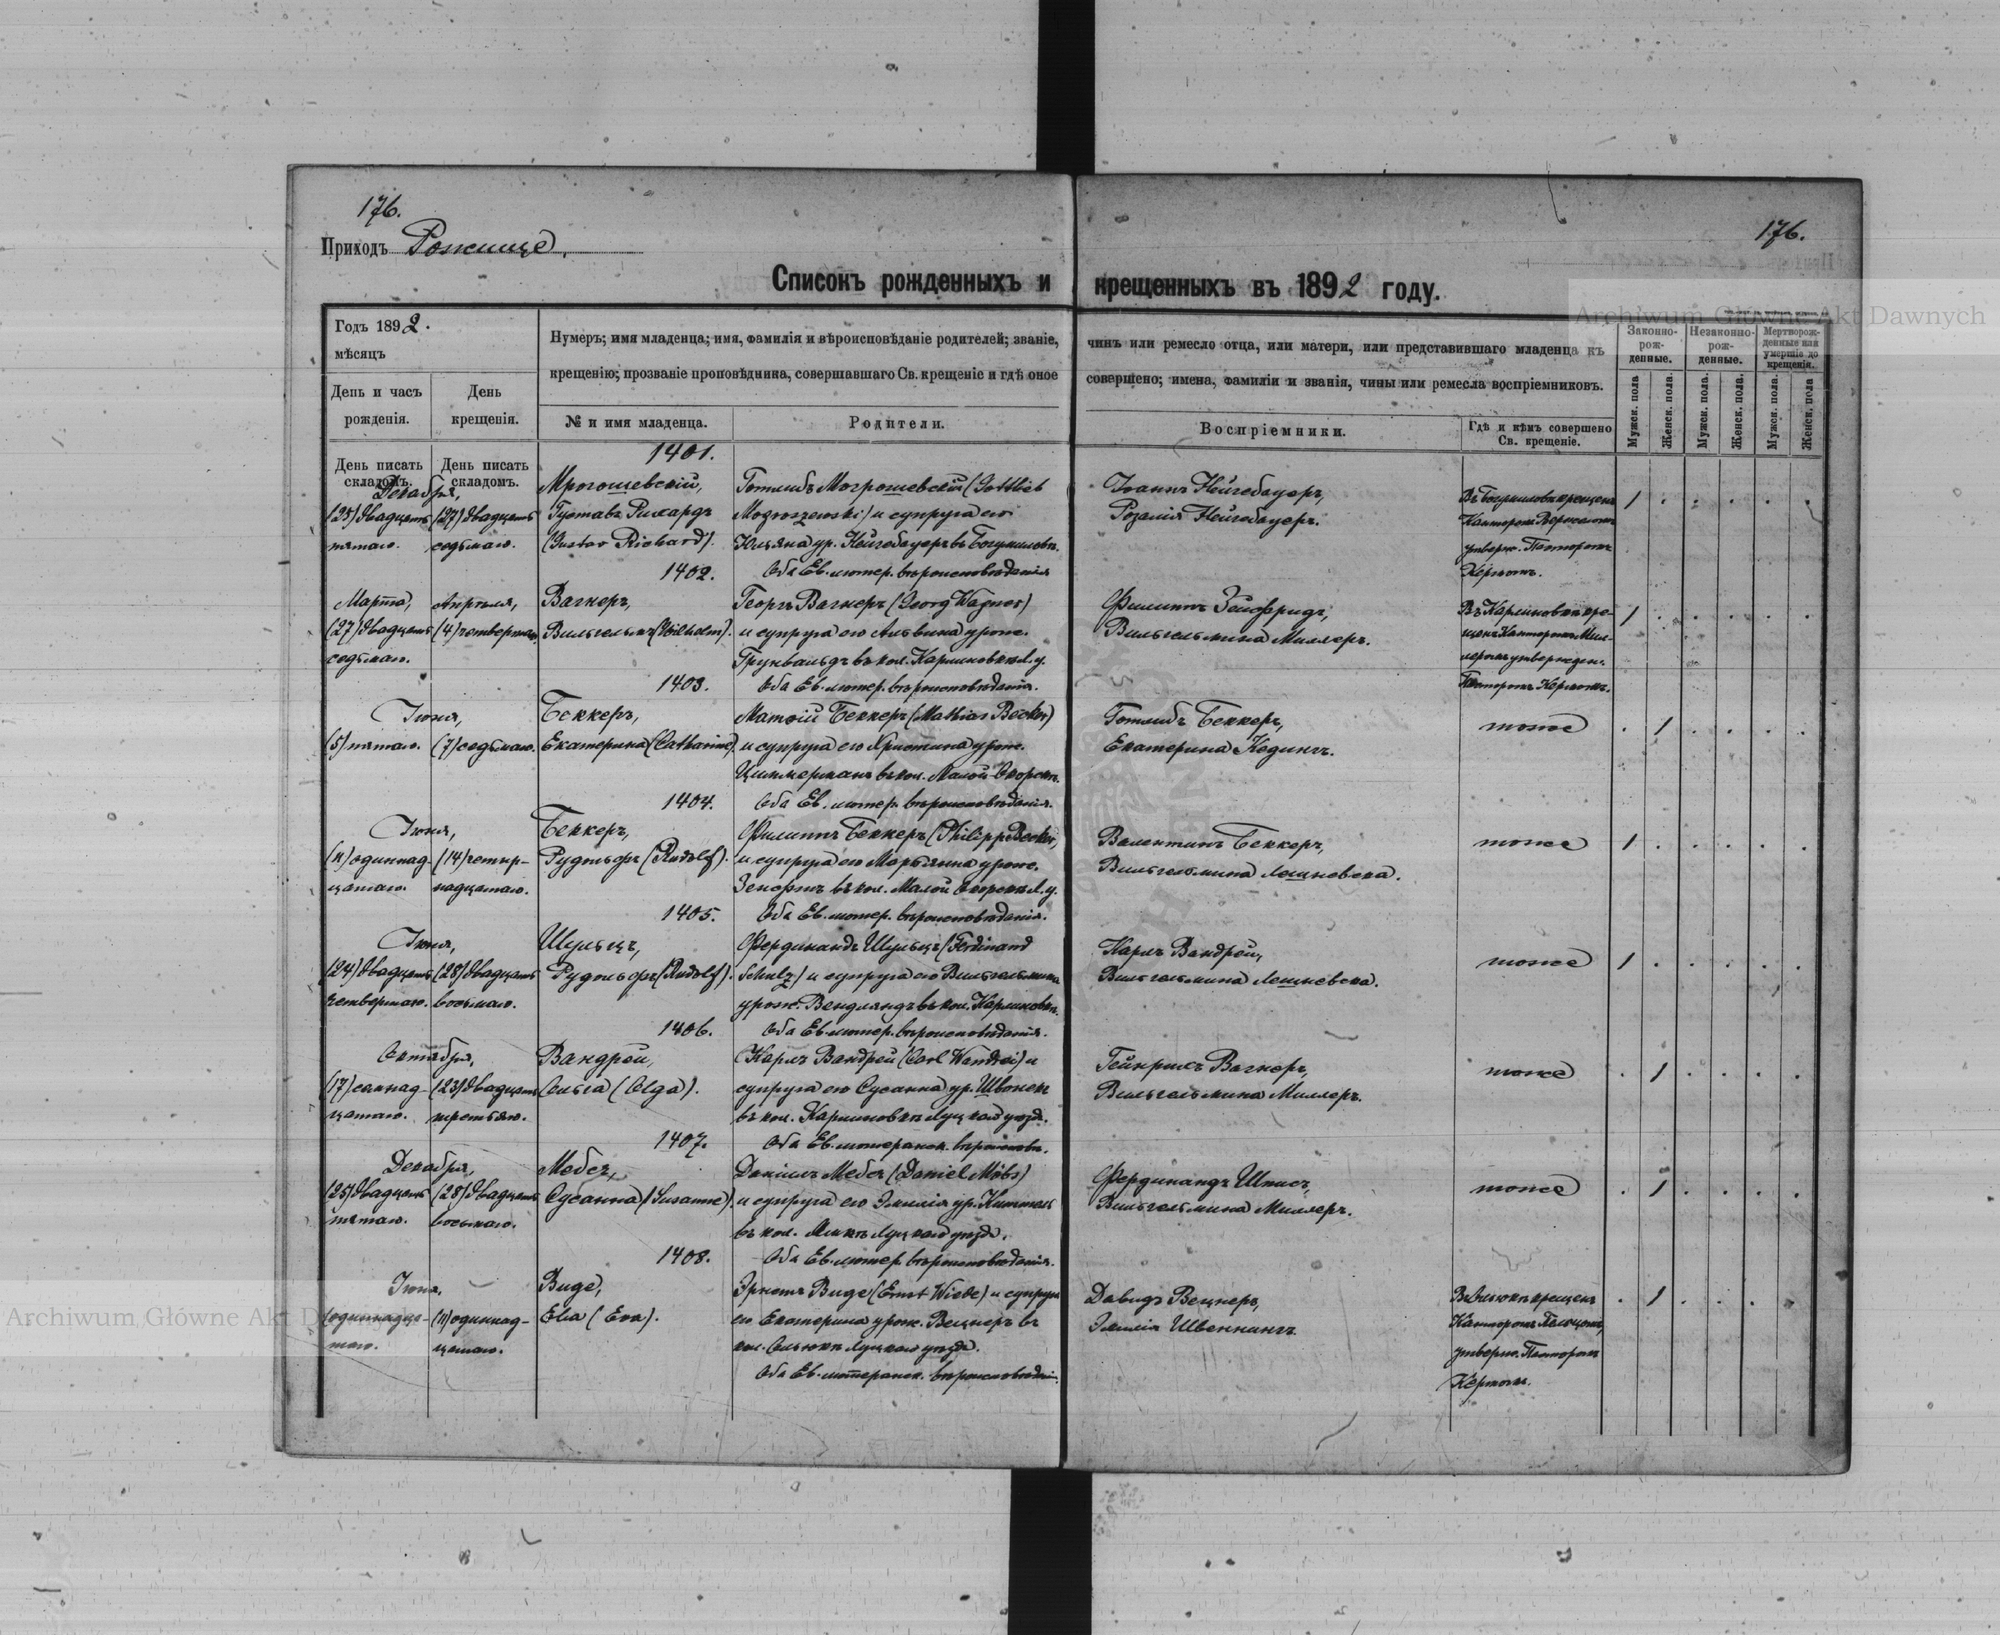 176.
176.
Приходъ Рожище.
Списокъ рожденныхъ и крещенныхъ въ 1892 году.
Годъ 1892.
мѣсяцъ
День и часъ рожденія.
День крещенія.
Нумеръ; имя младенца; имя, фамилія и вѣроисповѣданіе родителей; званіе, чинъ или ремесло отца, или матери, или представившаго младенца къ
крещенію; прозваніе проповѣдника, совершавшаго Св. крещеніе и гдѣ оное совершено; имена, фамиліи и званія, чины или ремесла воспріемниковъ.
№ и имя младенца.
Родители.
Воспріемники.
Гдѣ и кѣмъ совершено Св. крещеніе.
Законно-рож-денные.
Незаконно-рож-денные.
Мертворож-денные или умершіе до крещенія.
Мужск. пола
Женск. пола.
Мужск. пола.
Женск. пола.
Мужск. пола.
Женск. пола
День писать складомъ.
День писать складомъ.
1401.
Декабря,
(25) двадцать пятаго.
(27) двадцать седьмаго.
Мрогошевскій,
Густавъ Рихардъ
(Gustav Richard).
Готлибъ Могрошевскій (Gottlieb
Mogroszewski) и супруга его
Юльяна ур. Нейгебауеръ въ Богумиловкѣ.
Оба Ев. лютер. вѣроисповѣданія
Іоаннъ Нейгебауеръ,
Розалія Нейгебауеръ.
Въ Богумиловкѣ крещенъ
Канторомъ
утверж. Пасторомъ
Кермомъ.
1
1402.
Марта,
(27) двадцать
седьмаго.
Апрѣля,
(4) четвертаго.
Вагнеръ,
Вильгельмъ (Wilhelm).
Георгъ Вагнеръ (Georg Wagner)
и супруга его Альвина урож.
Грунвальдъ въ кол. Карлиновкѣ Л. у.
Оба Ев. лютер. вѣроисповѣданія.
Филиппъ Зейфридъ,
Вильгельмина Миллеръ.
Въ Карлиновкѣ кре-
щенъ Канторомъ Мил-
леромъ утвержден.
Пасторомъ Кермомъ.
1
1403.
Іюня,
(5) пятаго.
(7) седьмаго.
Беккеръ,
Екатерина (Catharine).
Матвій Беккеръ (Mathias Becker)
и супруга его Христина урож.
Циммерманъ въ кол. Малой Скоркѣ.
Оба Ев. лютер. вѣроисповѣданія.
Готлибъ Беккеръ,
Екатерина Кединъ.
тоже
1
1404.
Іюня,
(11) одиннад-
цатаго.
(14) четыр-
надцатаго.
Беккеръ,
Рудольфъ (Rudolf).
Филиппъ Беккеръ (Philipp Becker)
и супруга его Марьянна урож.
въ кол. Малой Скоркѣ Л. у.
Оба Ев. лютер. вѣроисповѣданія.
Валентинъ Беккеръ,
Вильгельмина Лешновска.
тоже
1
1405.
Іюня,
(24) двадцать
четвертаго.
(28) двадцать
восьмаго.
Шульцъ,
Рудольфъ (Rudolf).
Фердинандъ Шульцъ (Ferdinand
Schulz) и супруга его Вильгельмина
урож. Вендляндъ въ кол. Карлиновкѣ.
Оба Ев. лютер. вѣроисповѣданія.
Карлъ Вандрей,
Вильгельмина Лешневска.
тоже
1
1406.
Октября,
(17) семнад-
цатаго.
(23) двадцать
третьяго.
Вандрей,
Ольга (Olga).
Карлъ Вандрей (Carl Wandrei) и
супруга его Сусанна ур. Швонекъ
въ кол. Карлиновкѣ Луцкаго уѣзда.
Оба Ев. лютеранск. вѣроисповѣ.
Гейнрихъ Вагнеръ,
Вильгельмина Миллеръ.
тоже
1
1407.
Декабря,
(25) двадцать
пятаго.
(28) двадцать
восьмаго.
Мебсъ,
Сусанна (Susanne).
Даніилъ Мебсъ (Daniel Möbs)
и супруга его Эмилія ур. Киммель
въ кол. Луцкаго уѣзда.
Оба Ев. лютер. вѣроисповѣданія.
Фердинандъ Шписъ,
Вильгельмина Миллеръ.
тоже
1
1408.
Іюня,
одиннадца-
таго.
(11) одиннад-
цатаго.
Виде,
Ева (Eva).
Эрнстъ Виде (Ernst Wiede) и супруга
его Екатерина урож. Вецнеръ въ
кол. Ольюкѣ Луцкаго уѣзда.
Оба Ев. лютеранск. вѣроисповѣданія.
Давидъ Вецнеръ,
Эмилія Швеннингъ.
крещена
Канторомъ
утверж. Пасторомъ
Кермомъ.
1
Archiwum Główne Akt Dawnych
Archiwum Główne Akt Dawnych